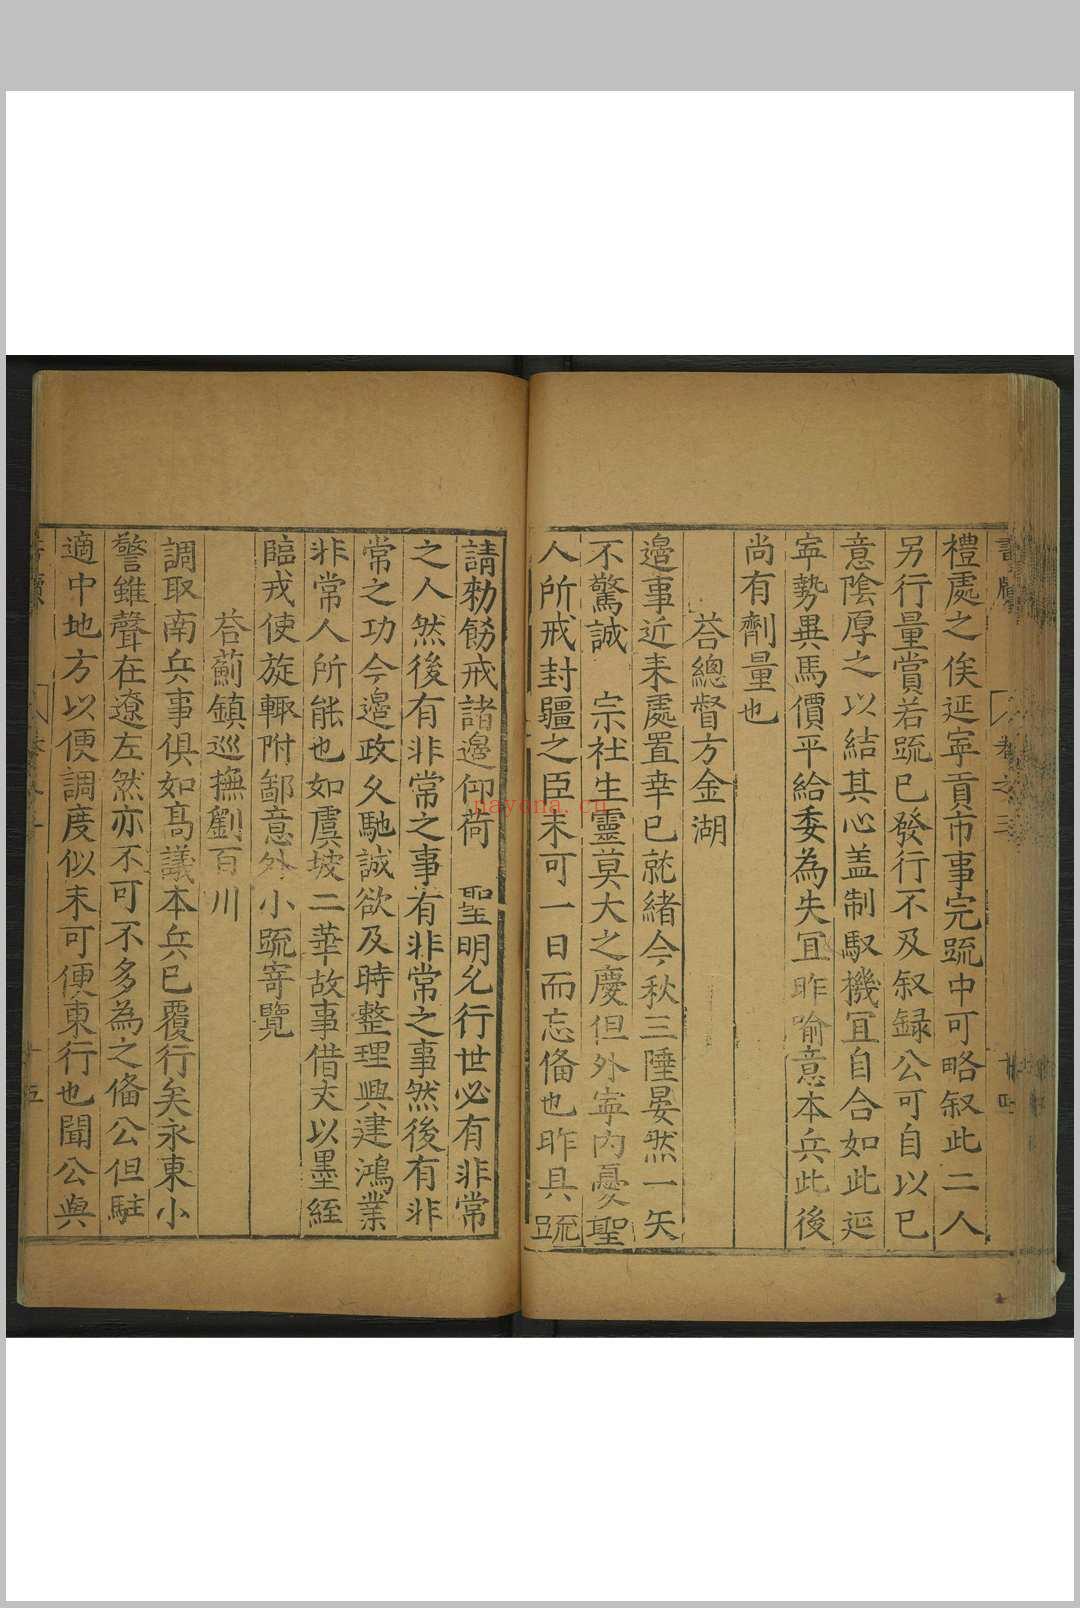 禮處之俟延寧貢市事完疏中可略叙此二人
另行量賞若疏已發行不及叙録公可自以已
意陰厚之以結其心盖制馭機冝自合如此延
寧勢異馬價平給委為失冝昨喻意本兵此後
尚有劑量也
荅總督方金湖
邉事近来處置幸已就緒今秋三陲晏然一矢
不驚誠 宗社生靈莫大之慶但外寧内憂聖
人所戒封疆之臣未可一日而忘俻也昨具疏
請勑飭戒諸邉仰荷 聖明允行世必有非常
之人然後有非常之事有非常之事然後有非
常之功今邉政久馳誠欲及時整理興建鴻業
非常人所能也如虞坡二華故事借丈以墨絰
臨戎使旋輙附鄙意外小疏寄覽
荅薊鎮巡撫劉百川
調取南兵事俱如高議本兵已覆行矣永東小
警雖聲在遼左然亦不可不多為之俻公但駐
適中地方以便調度似未可便東行也聞公與
書牘
卷之三
廿四
nayona.cn